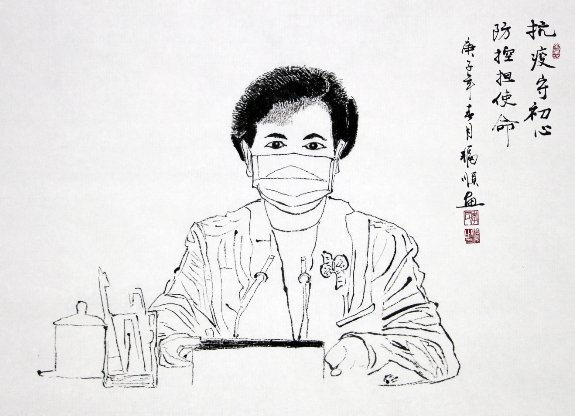 抗疫守初心
防控担使命
庚子年春月瑞顺画